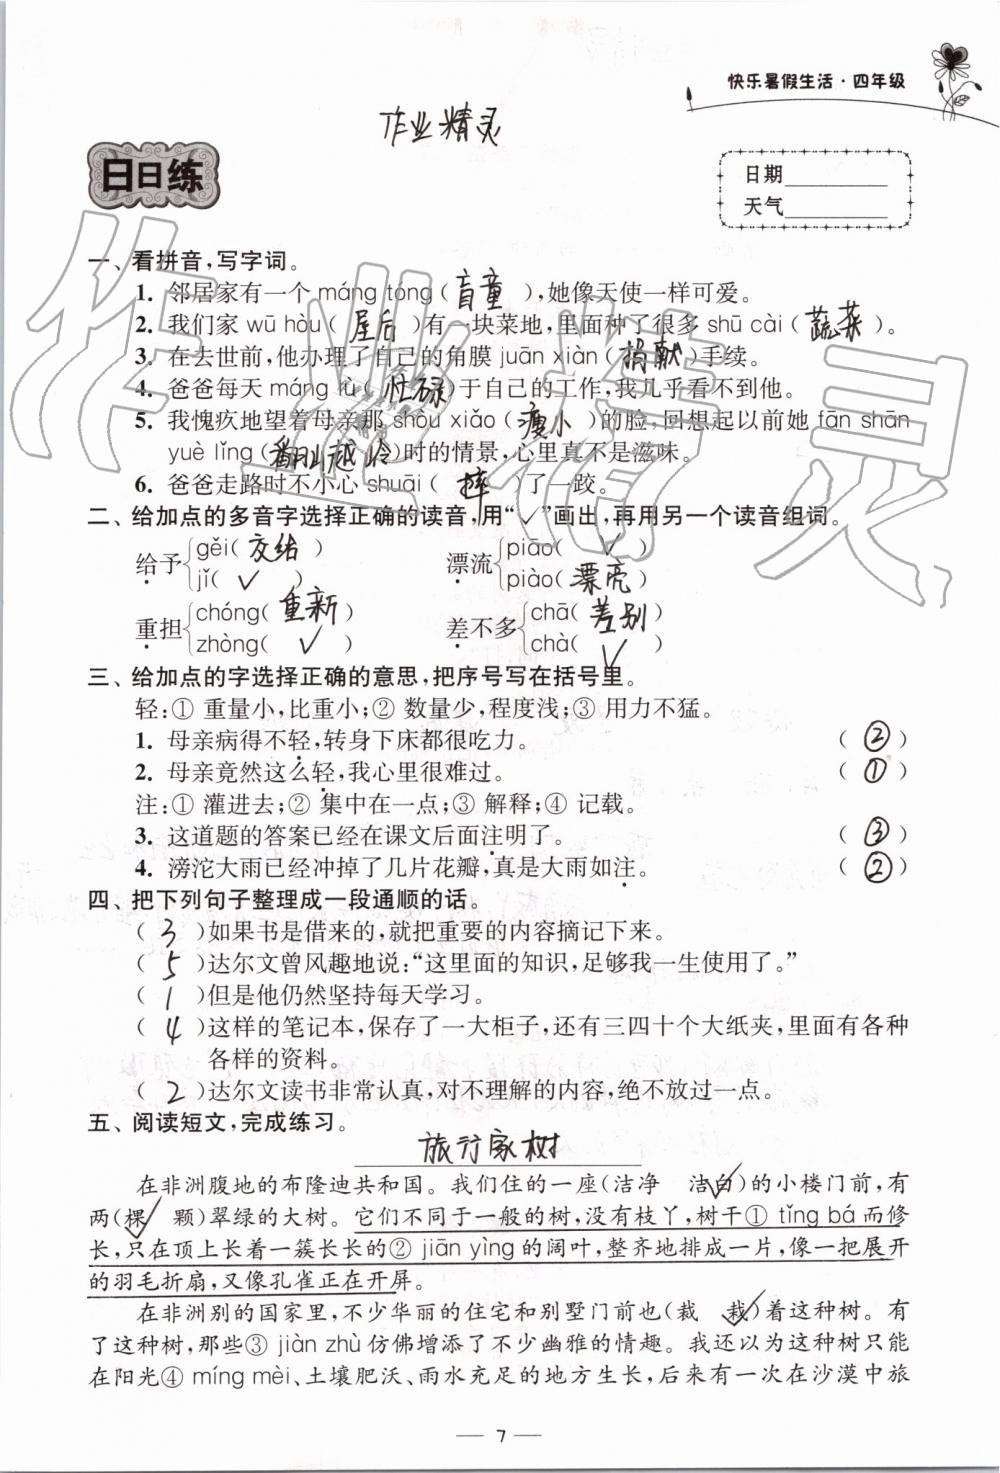 快乐暑假生活·四年级
作业精灵
日日练
日期
天气
一、看拼音,写字词。
1. 邻居家有一个 máng tóng( 盲童 ),她像天使一样可爱。
2. 我们家 wū hòu( 屋后 )有一块菜地,里面种了很多 shū cài( 蔬菜 )。
3. 在去世前,他办理了自己的角膜 juān xiàn( 捐献 )手续。
4. 爸爸每天 máng lù( 忙碌 )于自己的工作,我几乎看不到他。
5. 我愧疚地望着母亲那 shòu xiǎo( 瘦小 )的脸,回想起以前她 fān shān
yuè lǐng( 翻山越岭 )时的情景,心里真不是滋味。
6. 爸爸走路时不小心 shuāi( 摔 )了一跤。
二、给加点的多音字选择正确的读音,用“✓”画出,再用另一个读音组词。
给予 gěi( 交给 ) jǐ( ✓ ) 漂流 piāo( ✓ ) piào( 漂亮 )
重担 chóng( 重新 ) zhòng( ✓ ) 差不多 chā( 差别 ) chà( ✓ )
三、给加点的字选择正确的意思,把序号写在括号里。
轻:① 重量小,比重小;② 数量少,程度浅;③ 用力不猛。
1. 母亲病得不轻,转身下床都很吃力。 ( ② )
2. 母亲竟然这么轻,我心里很难过。 ( ① )
注:① 灌进去;② 集中在一点;③ 解释;④ 记载。
3. 这道题的答案已经在课文后面注明了。 ( ③ )
4. 滂沱大雨已经冲掉了几片花瓣,真是大雨如注。 ( ② )
四、把下列句子整理成一段通顺的话。
( 3 )如果书是借来的,就把重要的内容摘记下来。
( 5 )达尔文曾风趣地说:“这里面的知识,足够我一生使用了。”
( 1 )但是他仍然坚持每天学习。
( 4 )这样的笔记本,保存了一大柜子,还有三四十个大纸夹,里面有各种
各样的资料。
( 2 )达尔文读书非常认真,对不理解的内容,绝不放过一点。
五、阅读短文,完成练习。
旅行家树
在非洲腹地的布隆迪共和国。我们住的一座(洁净 洁白✓)的小楼门前,有
两(棵✓ 颗)翠绿的大树。它们不同于一般的树,没有枝丫,树干① tǐng bá 而修
长,只在顶上长着一簇长长的② jiān yìng 的阔叶,整齐地排成一片,像一把展开
的羽毛折扇,又像孔雀正在开屏。
在非洲别的国家里,不少华丽的住宅和别墅门前也(裁 栽✓)着这种树。有
了这种树,那些③ jiàn zhù 仿佛增添了不少幽雅的情趣。我还以为这种树只能
在阳光④ míng mèi、土壤肥沃、雨水充足的地方生长,后来有一次在沙漠中旅
— 7 —
作业精灵